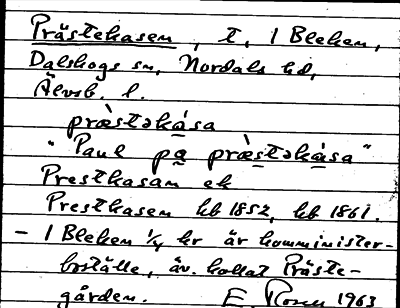 Prästekasen, t, 1 Bleken,
Dalskogs sn, Nordals hd,
Älvsb. l.
præ̀stəkása
"Paul pa̲ præ̀s̲təkása"
Prestkasan ek
Prestkasen kb 1852, kb 1861.
- 1 Bleken 1/4 kr är komminister-
boställe, äv. kallat Präste-
gården. E. Rosen 1963